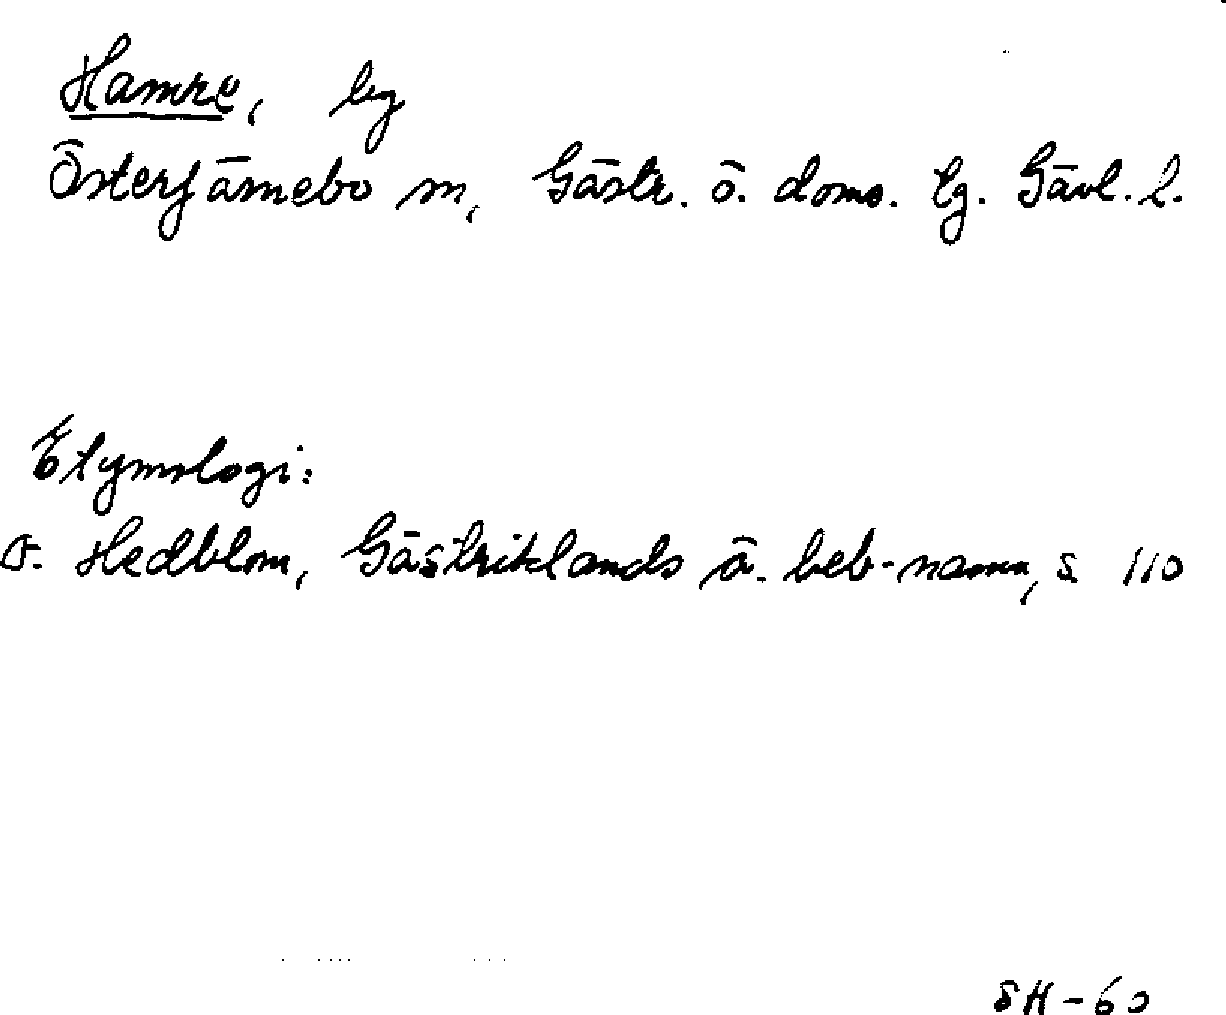 Hamre, by
Österfärnebo sn, Gästr. ö. doms. tg. Gävl. l.
Etymologi:
F. Hedblom, Gästriklands ä. beb-namn, s. 110
SH-60